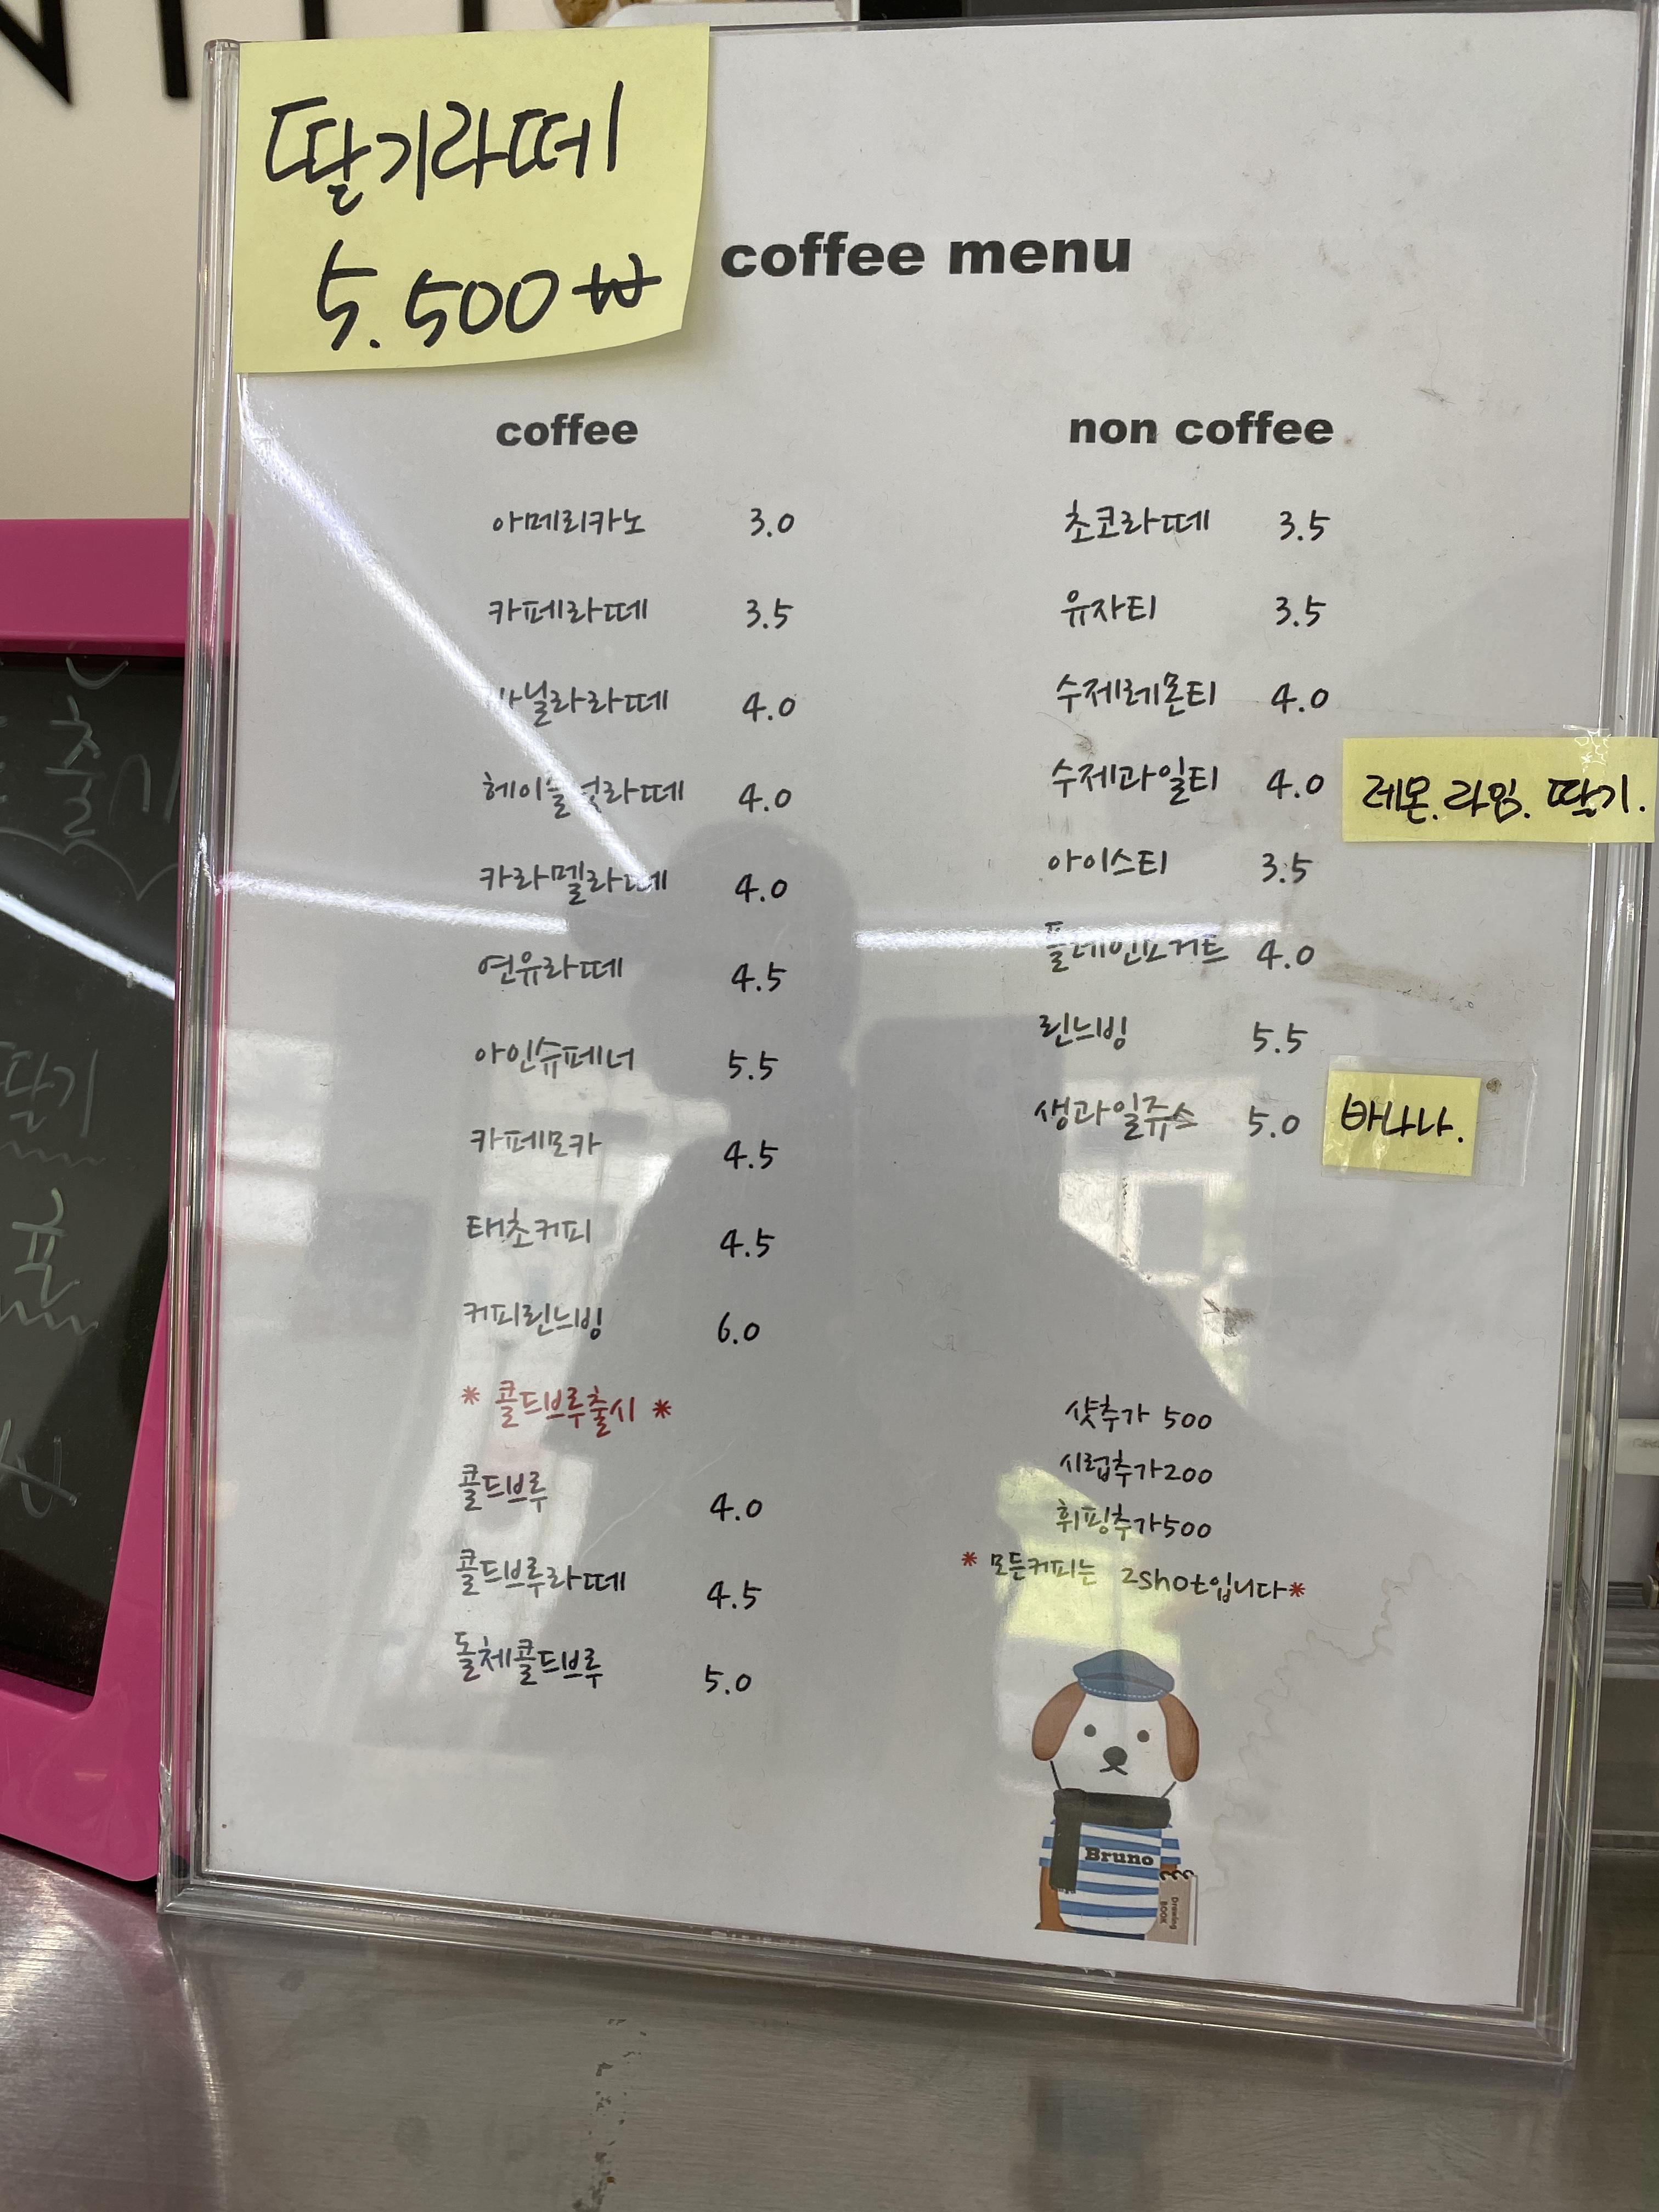 딸기라떼
5.500₩
coffee menu
coffee
아메리카노 3.0
카페라떼 3.5
바닐라라떼 4.0
헤이즐넛라떼 4.0
카라멜라떼 4.0
연유라떼 4.5
아인슈페너 5.5
카페모카 4.5
태초커피 4.5
커피린느빙 6.0
* 콜드브루출시 *
콜드브루 4.0
콜드브루라떼 4.5
돌체콜드브루 5.0
non coffee
초코라떼 3.5
유자티 3.5
수제레몬티 4.0
수제과일티 4.0 레몬.라임.딸기.
아이스티 3.5
플레인요거트 4.0
린느빙 5.5
생과일쥬스 5.0 바나나.
샷추가 500
시럽추가200
휘핑추가500
* 모든커피는 2shot입니다*
Bruno
Drawing
BOOK
딸기